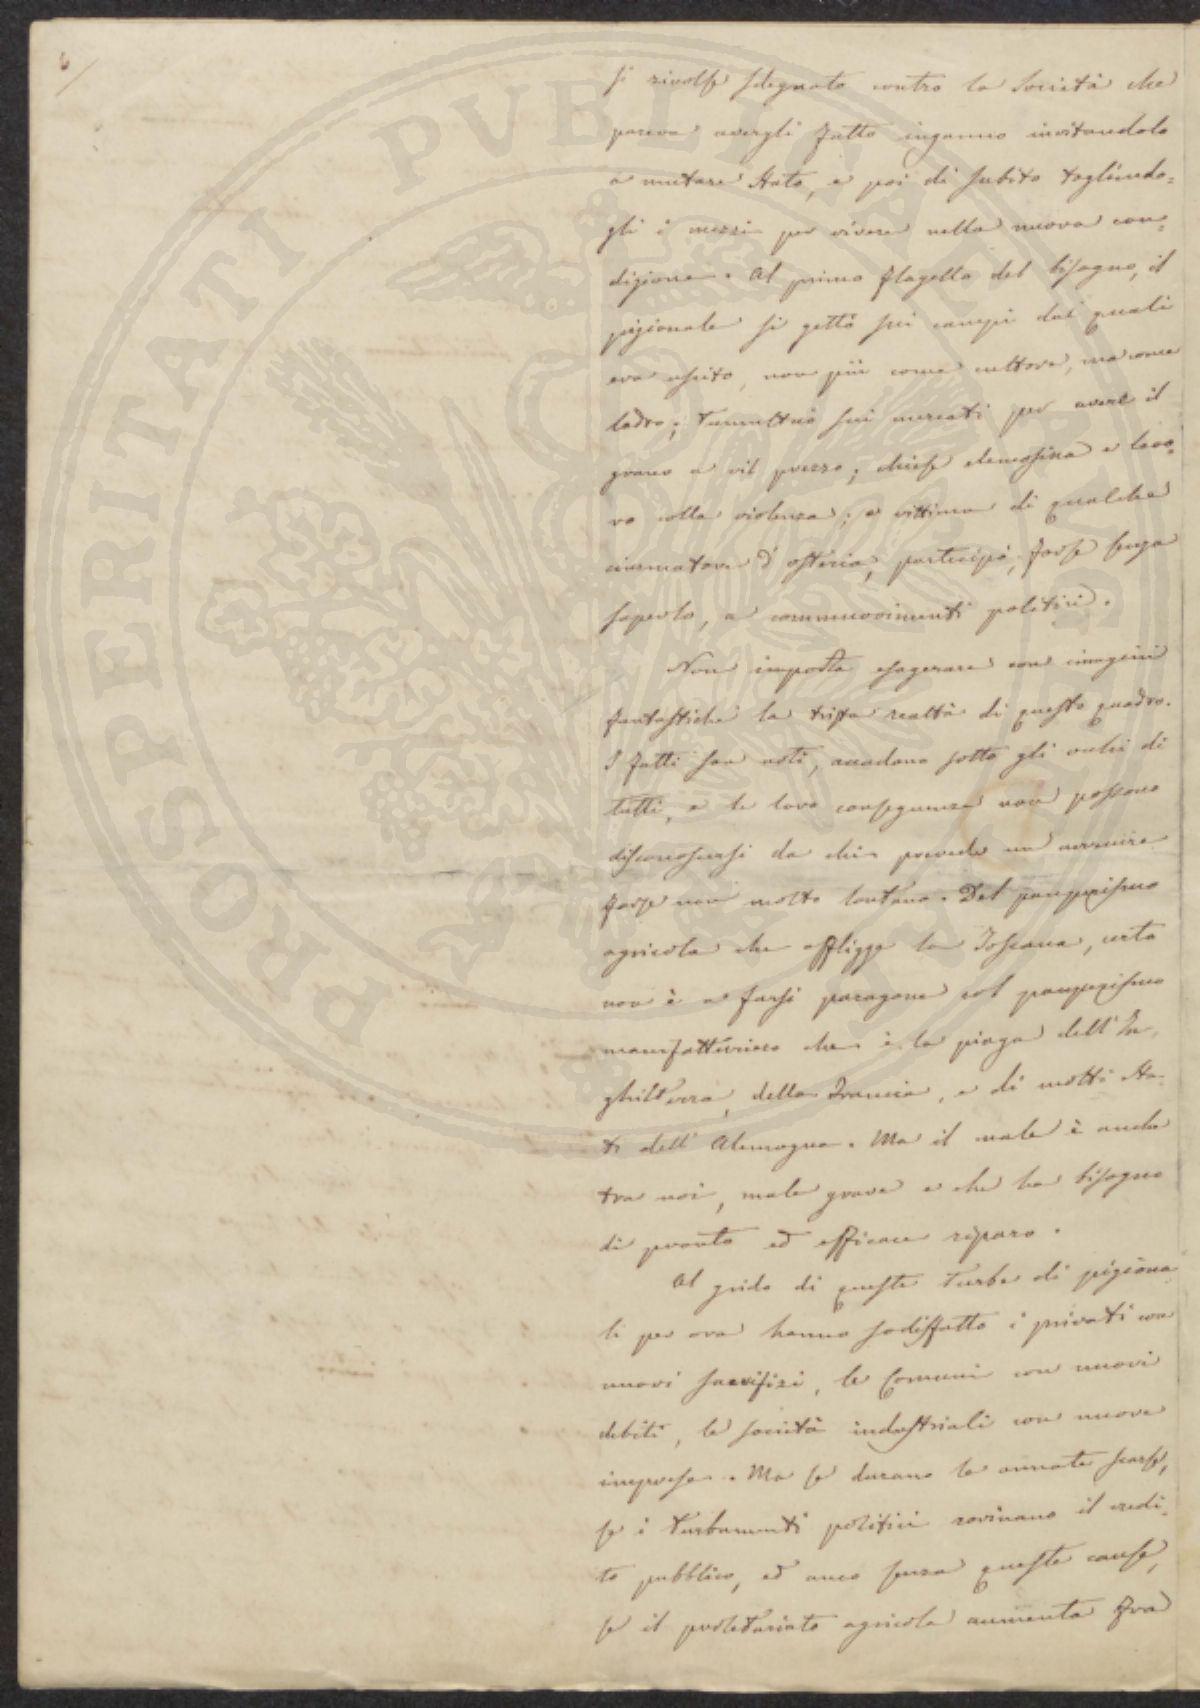 6/
si rivolse sdegnato contro la Società che
pareva avergli fatto inganno invitandolo
a mutare stato, e poi di subito togliendo=
gli i mezzi per vivere nella nuova con=
dizione. Al primo flagello del bisogno, il
pigionale si gettò sui campi dai quali
era uscito, non più come cultore, ma come
ladro; tumultuò sui mercati per avere il
grano a vil prezzo; chiese elemosina e lavo=
ro colla violenza; e vittima di qualche
ciurmatore d'osteria, partecipò, forse senza
saperlo, a commuovimenti politici.
Non importa esagerare con imagini
fantastiche la trista realtà di questo quadro.
I fatti son noti, accadono sotto gli occhi di
tutti, e le loro conseguenze non possono
disconoscersi da chi prevede un avvenire
forse non molto lontano. Del pauperismo
agricola che affligge la Toscana, certo
non è a farsi paragone col pauperismo
manifatturiero che è la piaga dell'In
ghilterra, della Francia, e di molti Sta=
ti dell'Alemagna. Ma il male è anche
tra noi, male grave e che ha bisogno
di pronto ed efficace riparo.
Al grido di queste turbe di pigiona
li per ora hanno sodisfatto i privati con
nuovi sacrifizi, le Comuni con nuovi
debiti, le società industriali con nuove
imprese. Ma se durano le annate scarse,
se i turbamenti politici rovinano il credi=
to pubblico, ed anco senza queste cause,
se il proletariato agricola aumenta fra
PROSPERITATI PVBLICAE